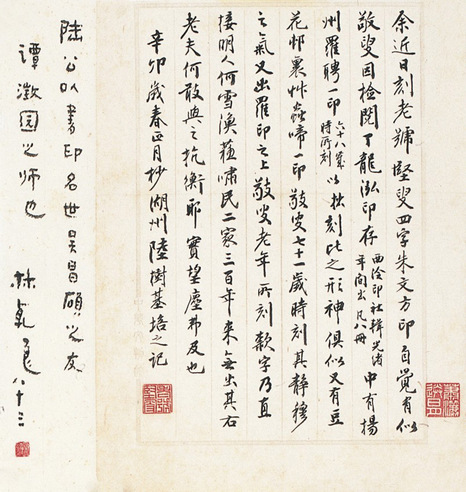 余近日刻老號堅叟四字朱文方印自覺有似
敬叟因檢閱丁龍泓印存西泠印社輯光緒年間出凡八冊中有揚
州羅聘一印六十八歲時所刻以拙刻比之形神俱似又有豆
花邨裏艸蟲啼一印敬叟七十一歲時刻其靜穆
之氣又出羅印之上敬叟老年所刻款字乃直
接明人何雪漁蘇嘯民二家三百年來無出其右
老夫何敢與之抗衡耶實望塵弗及也
辛卯歲春正月杪湖州陸樹基培之記
陸公以書印名世吳昌碩之友
譚澂園之師也
林乾良八十三